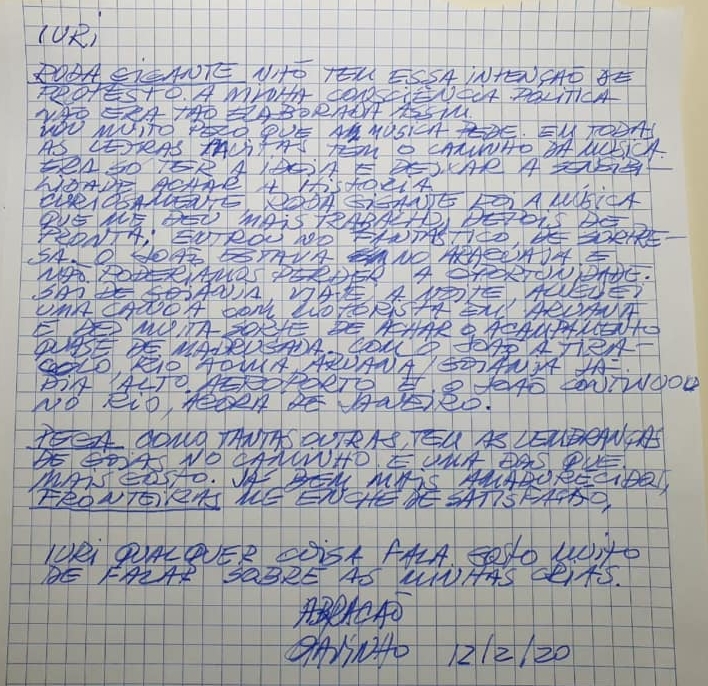 IURI
RODA GIGANTE NÃO TEM ESSA INTENÇÃO DE
PROTESTO. A MINHA CONSCIÊNCIA POLÍTICA
NÃO ERA TÃO ELABORADA ASSIM.
VOU MUITO PELO QUE A MÚSICA PEDE. EM TODAS
AS LETRAS MUITAS TEM O CAMINHO DA MÚSICA.
ERA SÓ TER A IDEIA E DEIXAR A SENSIBI-
LIDADE ACHAR A HISTÓRIA
CURIOSAMENTE RODA GIGANTE FOI A MÚSICA
QUE ME DEU MAIS TRABALHO, DEPOIS DE
PRONTA; ENTROU NO FANTÁSTICO, DE SORPRE-
SA. O JOÃO ESTAVA NO ARAGUAIA E
NÃO PODERIAMOS PERDER A OPORTUNIDADE.
SAÍ DE GOIÂNIA A NOITE, ALUGUEI
UMA CANOA COM MOTORISTA EM ARUANÃ
E DEI MUITA SORTE DE ACHAR O ACAMPAMENTO
QUASE DE MADRUGADA. COM O JOÃO A TIRA-
COLO, RIO ACIMA, ARUANÃ/GOIÂNIA JÁ
DIA ALTO. AEROPORTO E O JOÃO CONTINUOU
NO RIO, AGORA DE JANEIRO.
PEGA COMO TANTAS OUTRAS, TEM AS LEMBRANÇAS
DE GOIÁS NO CAMINHO. E UMA DAS QUE
MAIS GOSTO. JÁ BEM MAIS AMADURECIDO,
FRONTEIRAS ME ENCHE DE SATISFAÇÃO,
IURI QUALQUER COISA FALA GOSTO MUITO
DE FALAR SOBRE AS MINHAS CRIAS.
ABRAÇÃO
12/2/20